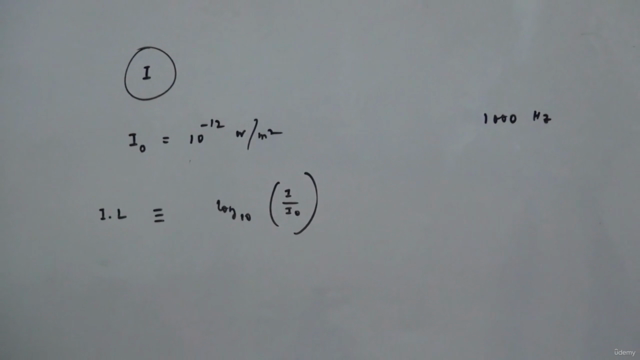 I
I₀ = 10⁻¹² W/m²
1000 Hz
I.L ≡ log₁₀ (I/I₀)
ûdemy